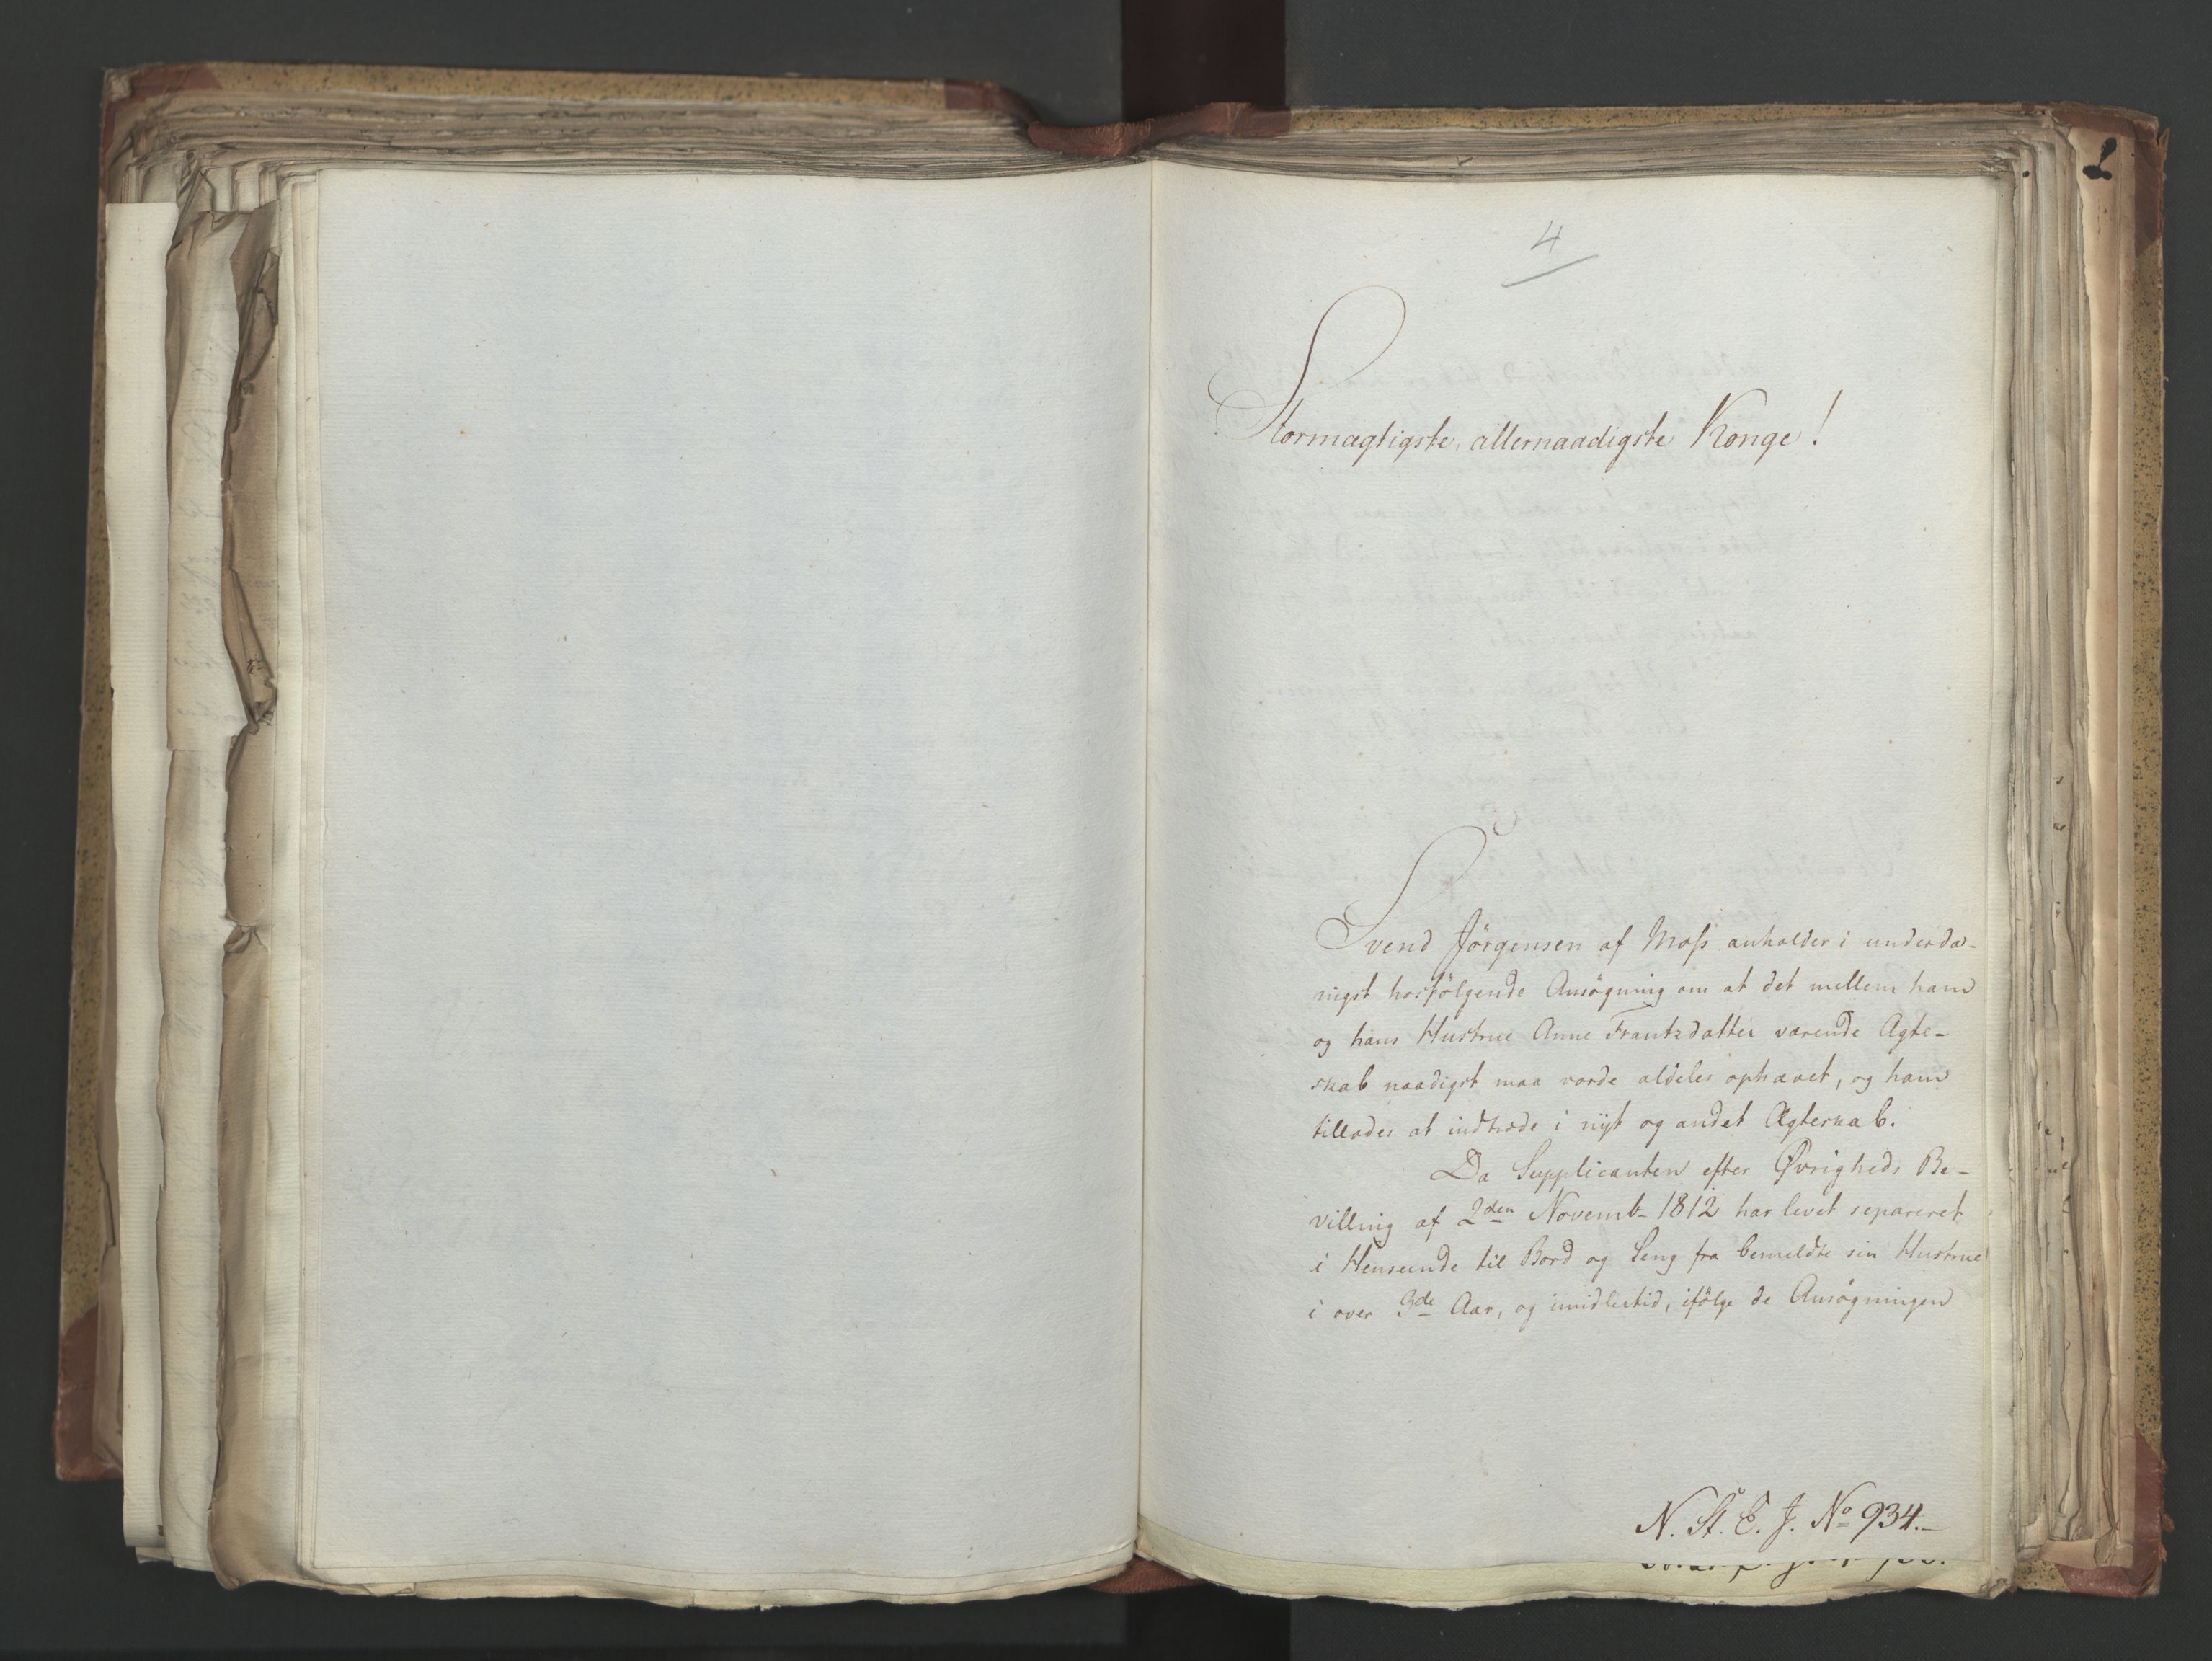 4
Stormægtigste, allernaadigste Konge!
Svend Jörgensen af Moss anholder i underdæ-
nigst hosfölgende Ansögning om at det mellem ham
og hans Hustrue Anne Frantzdatter værende Ægte-
skab naadigst maa vorde aldeles ophævet, og ham
tillades at indtræde i nÿt og andet Ægteskab.
Da Supplicanten efter Øvrigheds Be-
villing af 2den Novemb- 1812 har levet separeret
i Henseende til Bord og Seng fra bemeldte sin Hustrue
i over 3de Aar, og imidlertid, ifölge de Ansögningen
N. St. E. J. No 934.-